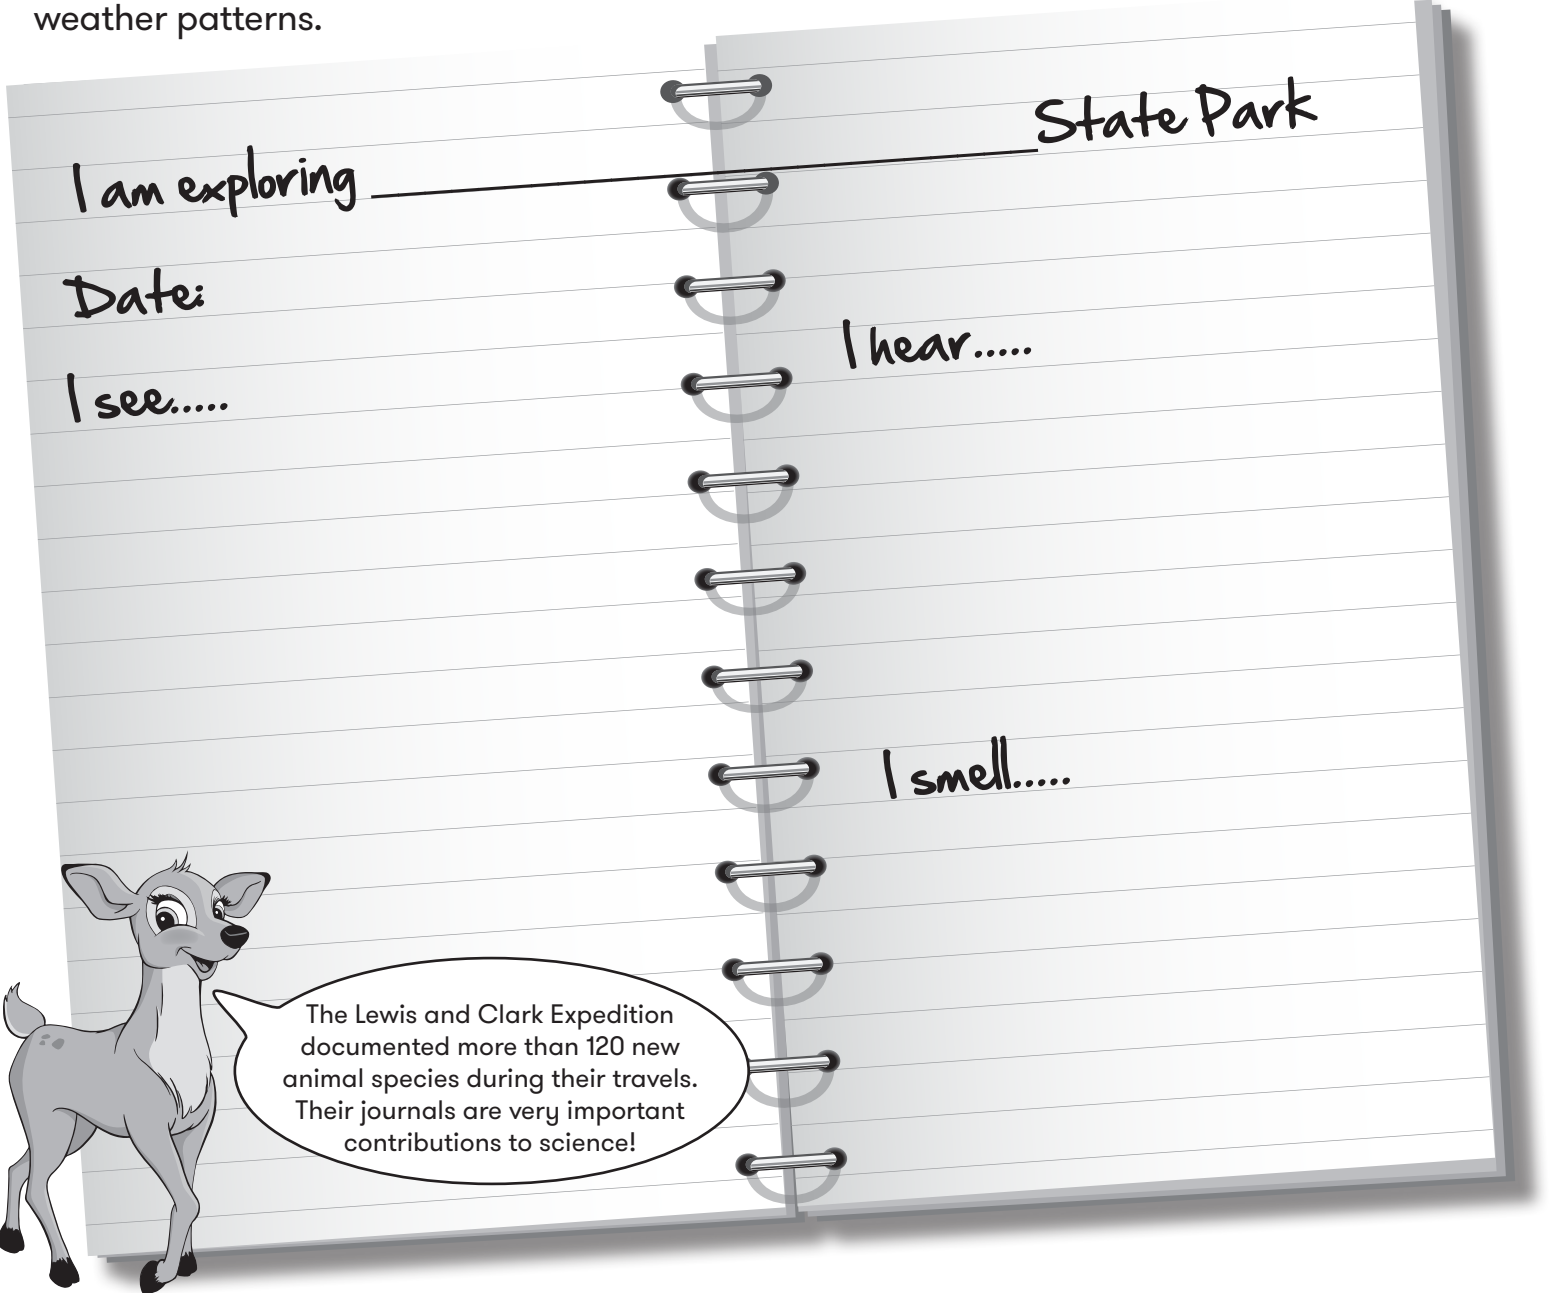 weather patterns.
I am exploring ____________________ State Park
Date:
I see.....
I hear.....
I smell.....
The Lewis and Clark Expedition
documented more than 120 new
animal species during their travels.
Their journals are very important
contributions to science!